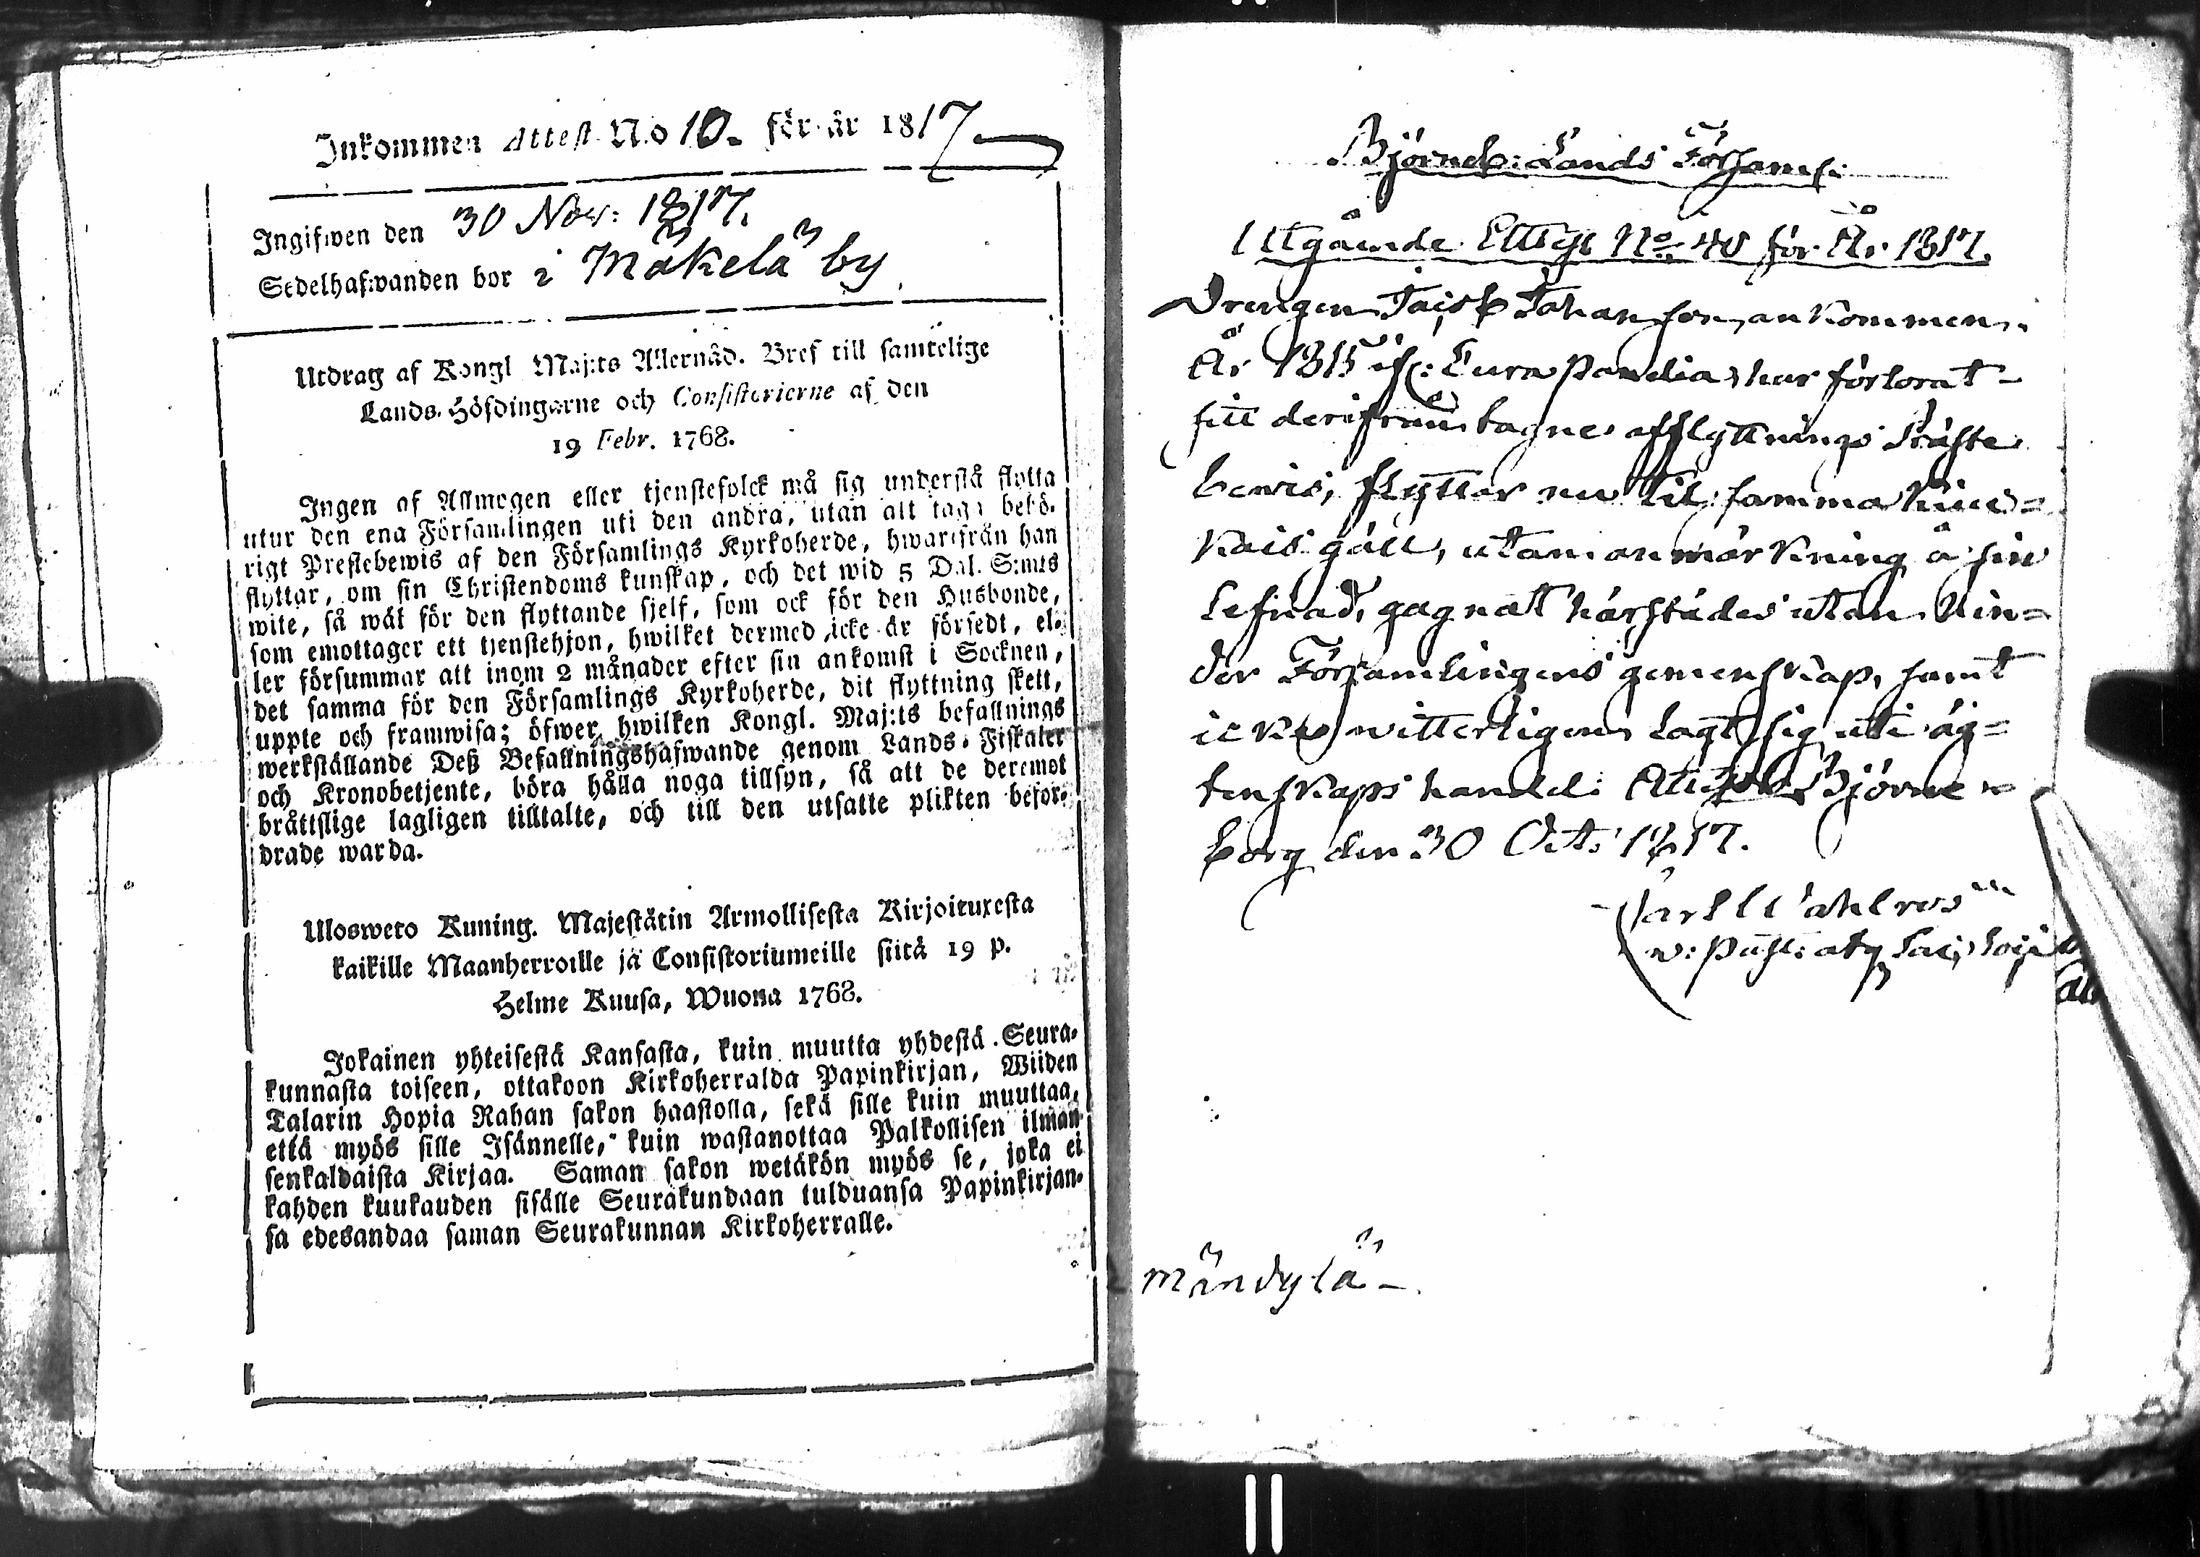 Inkommen Attest N:o 10. för år 1817
Ingifwen den 30 Nov: 1817.
Sedelhafwanden bor i Mäkelä by
Utdrag af Kongl Maj:ts Allernåd. Bref till samtelige
Lands-Höfdingarne och Consistorierne af den
19 Febr. 1768.
Ingen af Allmogen eller tjenstefolck må sig understå flytta
utur den ena Församlingen uti den andra, utan att taga behö-
rigt Prestebewis af den Församlings Kyrkoherde, hwarifrån han
flyttar, om sin Christendoms kunskap, och det wid 5 Dal. S:mts
wite, så wäl för den flyttande sjelf, som ock för den Husbonde,
som emottager ett tjenstehjon, hwilket dermed icke är försedt, el-
ler försummar att inom 2 månader efter sin ankomst i Socknen,
det samma för den Församlings Kyrkoherde, dit flyttning skett,
uppte och framwisa; öfwer hwilken Kongl. Maj:ts befallnings
werkställande Deß Befallningshafwande genom Lands-Fiskaler
och Kronobetjente, böra hålla noga tillsyn, så att de deremot
bråttslige lagligen tilltalte, och till den utsatte plikten beför-
drade warda.
Ulosweto Kuning. Majestätin Armollisesta Kirjoituxesta
kaikille Maanherroille ja Consistoriumeille siitä 19 p.
Helme Kuusa, Wuona 1768.
Jokainen yhteisestä Kansasta, kuin muutta yhdestä Seura-
kunnasta toiseen, ottakoon Kirkoherralda Papinkirjan, Wiiden
Talarin Hopia Rahan sakon haastolla, sekä sille kuin muuttaa,
että myös sille Isännelle, kuin wastanottaa Palkollisen ilman
senkaldaista Kirjaa. Saman sakon wetäkön myös se, joka ei
kahden kuukauden sisälle Seurakundaan tulduansa Papinkirjan-
sa edesandaa saman Seurakunnan Kirkoherralle.
Björneb: Lands Församl:
Utgående Attest No 48 för År 1817.
Drengen Johansson, ankommen
År 1815 if: Eura har förlorat
sitt derifrån tagne afflyttnings Präste
bewis, flyttar nu til samma
gäll, utan anmärkning å sin
lefnad, gagnat härstädes utan hin=
der Församlingens gemenskap, samt
icke witterligen lagt sig uti äg=
tenskaps handel: Attest. Björne=
borg den 30 Oct: 1817.
Carl Wahlroos
mändylä